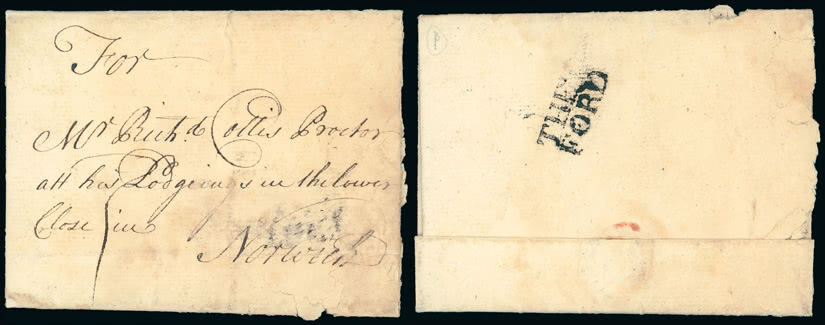 For
Mr Richd Collis Proctor
att his Lodgeings in the Lower
Close in
Norwich
P
THET
FORD